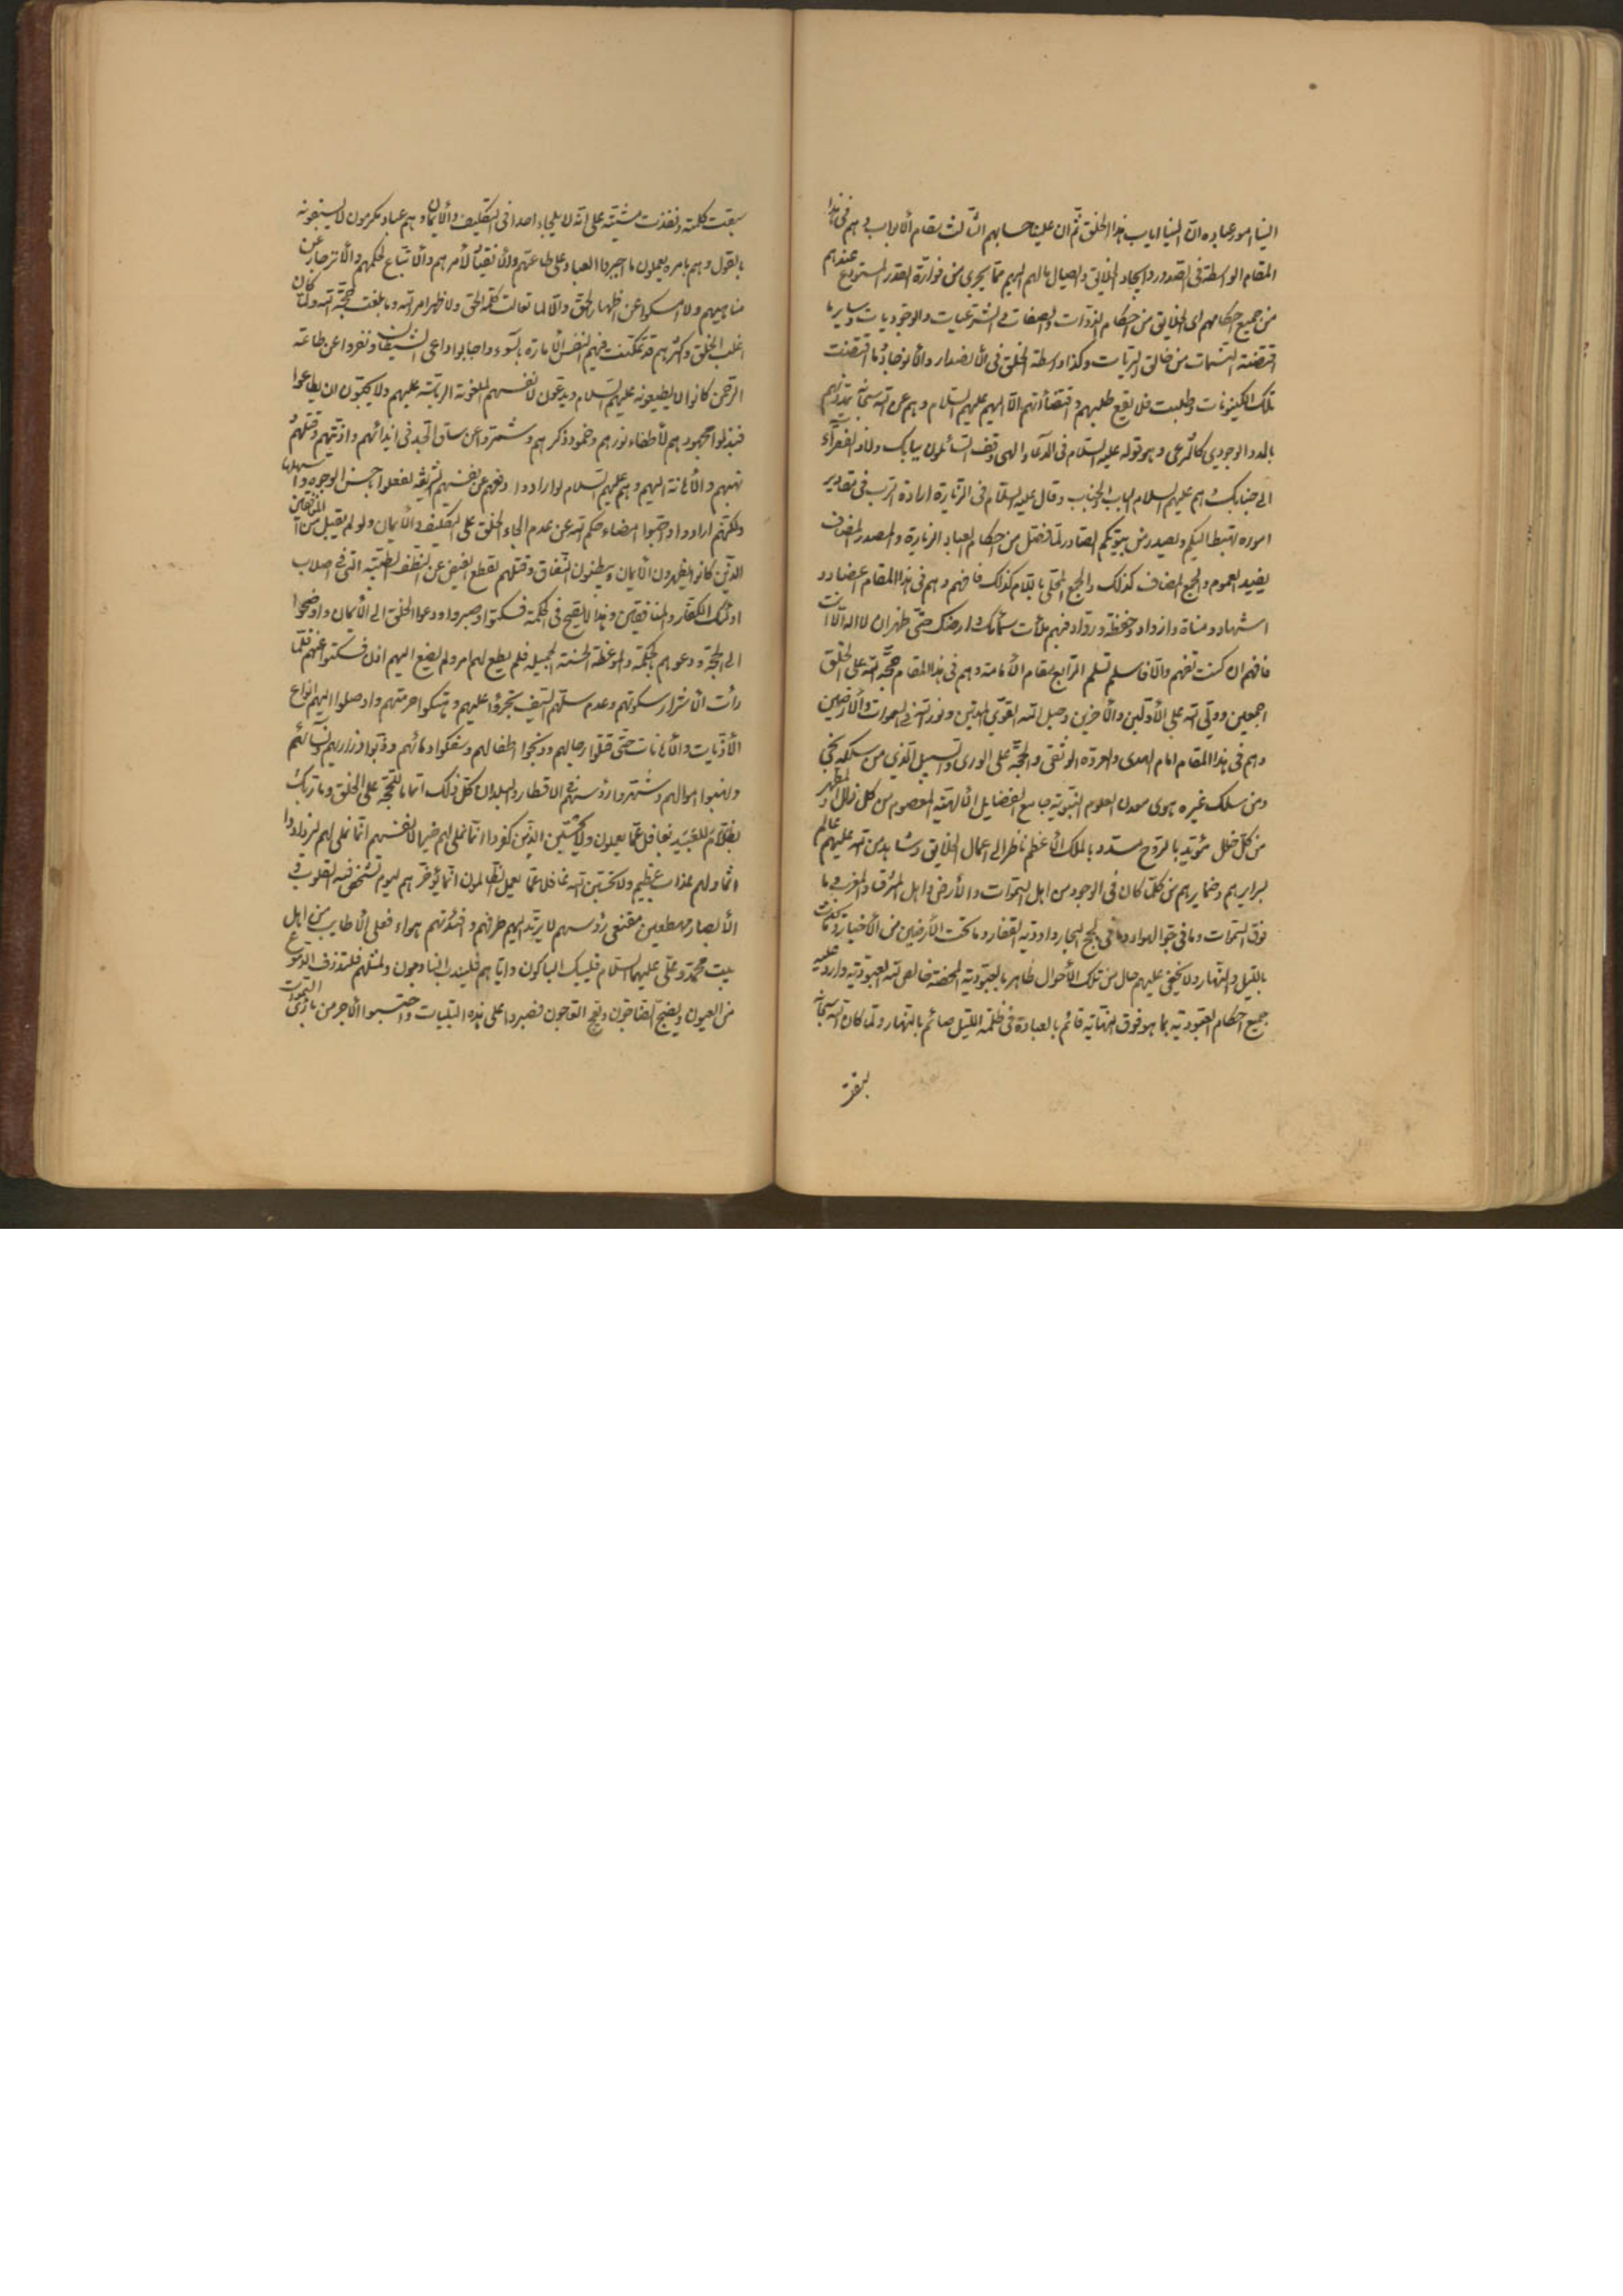 الينا امور عباده انّ الينا اياب هذا الخلق ثم ان علينا حسابهم الثالث مقام الابواب وهم فى هذا
المقام الواسطة فى الصدور وايجاد الخلايق وايصال ما لهم اليهم مما يجرى من فوارة القدر المستودع عندهم
من جميع احكامهم اى الخلايق من احكام الذوات والصفات فى الشرعيات والوجوديات وساير ما
اقتضته السمات من خالق البريات وكذا واسطة الخلق فى الاستمداد
تلك الكينونات وطلبت فلا يقع طلبهم واقتضاءاتهم الّا اليهم عليهم السلام وهم عن الله سبحانه تمدّهم
بالمدد الوجودي كالشرعى وهو قوله عليه السلام فى الدعاء الهى وقف السائلون ببابك ولاذ الفقراء
الى جنابك هم عليهم السلام الباب والجناب وقال عليه السلام فى الزيارة ارادة الرب فى مقادير
اموره تهبط اليكم وتصدر من بيوتكم الصادر لما فصّل من احكام العباد الزيارة والمصدر المضاف
يفيد العموم والجمع المضاف كذلك والجمع المحلى باللام كذلك فافهم وهم فى هذا المقام اعضاد و
اشهاد ومناة وازواد وحفظة ورواد فبهم ملأت سمائك وارضك حتّى ظهر ان لا اله الّا انت
فافهم ان كنت تفهم والّا فاسلم تسلم الرابع مقام الامامة وهم فى هذا المقام حجّة الله على الخلق
اجمعين وولى الله على الاولين والآخرين وحبل الله القوي المتين ونور الله فى السموات والارضين
وهم فى هذا المقام امام الهدى والعروة الوثقى والحجّة على الورى والسبيل الذي من سلكه نجى
ومن سلك غيره هوى معدن العلوم النبوية جامع الفضايل الالهية المعصوم من كل زلل والمطهر
من كل خلل مؤيد بالروح مسدد بالملك الاعظم ناظر الى اعمال الخلايق وشاهد من الله عليهم عالم
بسرايرهم وضمايرهم من كلّ كان فى الوجود من اهل السموات والارض واهل المشرق والمغرب وما
فوق السموات وما فى جوّ الهواء وما فى لجج البحار واودية القفار وما تحت الارضين من الاخيار
بالليل والنهار ولا يخفى عليهم حال من تلك الاحوال ظاهر بالعبودية المحضة خالص لله العبودية وارد عليه
جميع احكام العبودية بما هو فوق النهاية قائم بالعبادة فى ظلمة الليل صائم بالنهار ولما كان الله سبحانه
سبقت
سبقت كلمته ونفذت مشيته على انه لا يلجاء احدا فى التكليف والايمان وهم عباد مكرمون لا يسبقونه
بالقول وهم بامره يعملون ما اجبروا العباد على طاعتهم والانقياد لامرهم والاتباع لحكمهم والانزجار عن
مناهيهم ولا امسكوا عن اظهار الحق والّا لما تعالت كلمة الحق ولا ظهر امر الله وما بلغت حجّة الله ولما كان
اغلب الخلق واكثرهم قد تمكنت فيهم النفس الامارة بالسوء واجابوا داعى الشيطان ونفروا عن طاعة
الرحمن كانوا لا يطيعونه عليهم السلام ويدعون لانفسهم الملعونة الرياسة عليهم ولا يحبّون ان يطاعوا
فبذلوا مجهودهم لاطفاء نورهم وخمود ذكرهم وشمروا عن ساق الجد فى ايذائهم واذيتهم وقتلهم
ونهبهم والاهانة اليهم وهم عليهم السلام لو ارادوا دفعهم عن انفسهم الشريفة لفعلوا باحسن الوجوه واسهلها
ولكنهم ارادوا واحبّوا امضاء حكم الله عن عدم الجاء الخلق على التكليف والايمان ولو لم يقبل من المنافقين
الذين كانوا يظهرون الايمان ويبطنون النفاق وقتلهم لقطع الفيض عن النطف الطيبة التى فى اصلاب
اولئك الكفّار والمنافقين وهذا لا يصح فى الحكمة فسكتوا وصبروا ودعوا الخلق الى الايمان واوضحوا
الى الحجّة ودعوهم بالحكمة والموعظة الحسنة الجميلة فلم يطع لهم امر ولم يضع اليهم اذن فسكتوا عنهم فلمّا
رأت الاشرار سكوتهم وعدم سلّهم السيف تجرّؤا عليهم وهتكوا حرمتهم واوصلوا اليهم انواع
الاذيات والاهانات حتّى قتلوا رجالهم وذبحوا اطفالهم وسفكوا دمائهم وسبوا ذراريهم ونسائهم
ونهبوا اموالهم وشهروا رؤسهم فى الاقطار والبلدان كل ذلك اتماما للحجّة على الخلق وما ربّك
بظلام للعبيد بغافل عمّا يعملون ولا يحسبنّ الذين كفروا انما نملى لهم خير لانفسهم انّما نملى لهم ليزدادوا
اثما ولهم عذاب عظيم ولا تحسبنّ الله غافلا عمّا يعمل الظالمون انّما يؤخّرهم ليوم تشخص فيه القلوب و
الابصار مهطعين مقنعى رؤسهم لا يرتد اليهم طرفهم وافئدتهم هواء فعلى الاطايب من اهل
بيت محمّد وعلى عليهما السلام فليبك الباكون واياهم فليندب النادبون ولمثلهم فلتذرف الدموع
من العيون وليضج الضاجون ويعج العاجون فصبروا على هذه البليات واحتسبوا الاجر من بارئ السموات